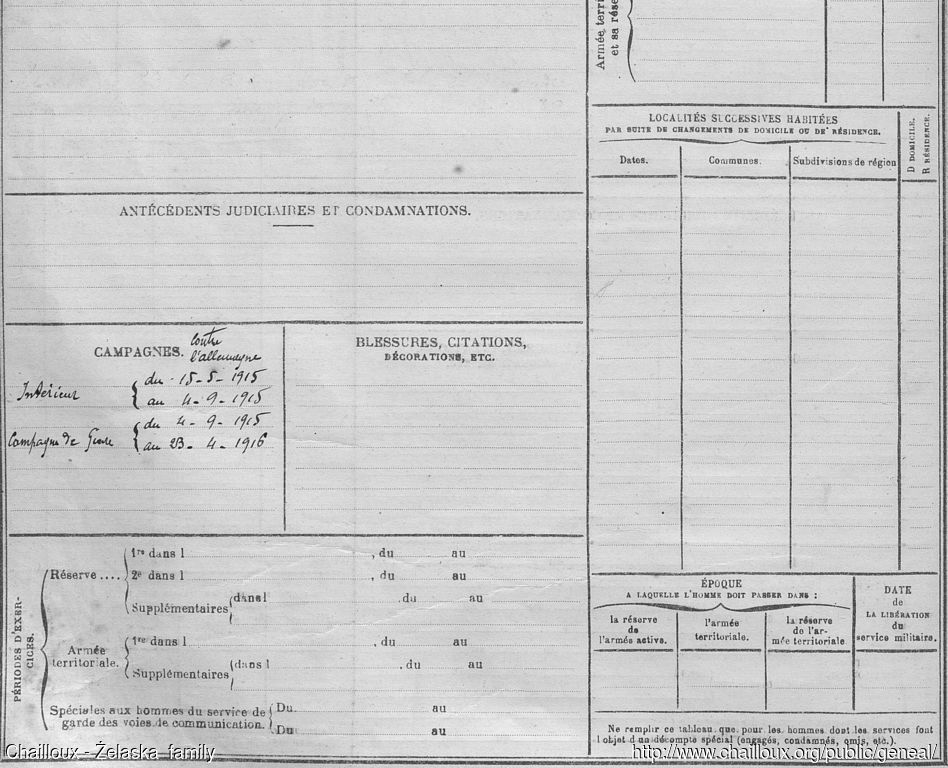 Armée terri
et sa rése
LOCALITÉS SUCCESSIVES HABITÉES
PAR SUITE DE CHANGEMENTS DE DOMICILE OU DE RÉSIDENCE.
D DOMICILE.
R RÉSIDENCE.
Dates.
Communes.
Subdivisions de région
ANTÉCÉDENTS JUDICIAIRES ET CONDAMNATIONS.
CAMPAGNES. contre
l'allemagne
Intérieur
du 15-5-1915
au 4-9-1915
Campagne de Guerre
du 4-9-1915
au 23-4-1916
BLESSURES, CITATIONS,
DÉCORATIONS, ETC.
PÉRIODES D'EXER-
CICES.
Réserve ....
1re dans l , du au
2e dans l , du au
Supplémentaires
dans l , du au
Armée
territoriale.
1re dans l , du au
Supplémentaires
dans l , du au
Spéciales aux hommes du service de
garde des voies de communication.
Du au
Du au
ÉPOQUE
A LAQUELLE L'HOMME DOIT PASSER DANS :
la réserve
de
l'armée active.
l'armée
territoriale.
la réserve
de l'ar-
mée territoriale
DATE
de
LA LIBÉRATION
du
service militaire.
Ne remplir ce tableau que pour les hommes dont les services font
l'objet d'un décompte spécial (engagés, condamnés, omis, etc.).
Chailloux - Żelaska family
http://www.chailloux.org/public/geneal/